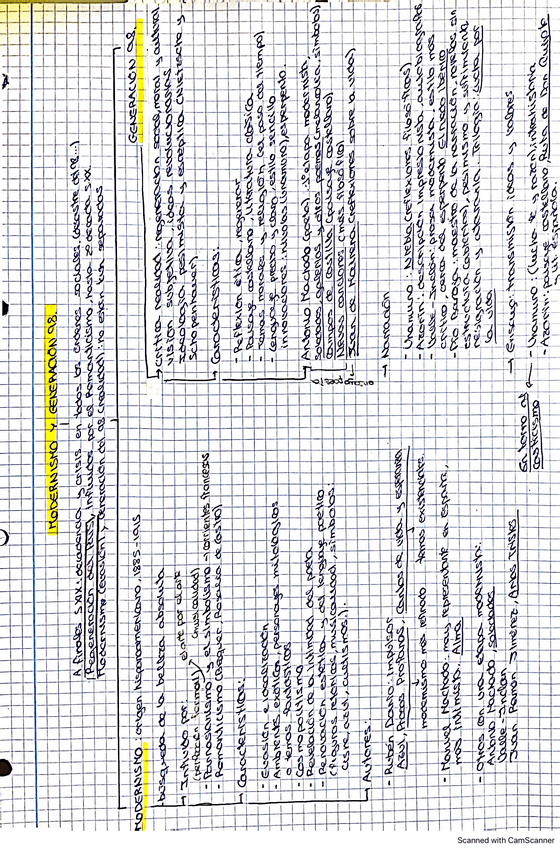 MODERNISMO Y GENERACIÓN 98.
A finales S.XIX: decadencia y crisis en todos los órdenes sociales. (desastre del 98...)
(Regeneración del País), influidos por el Romanticismo, hasta 2ª década S.XX.
Modernismo (evasión) y Generación del 98 (realidad): no están tan separados
MODERNISMO: origen hispanoamericano, 1885-1915
- búsqueda de la belleza absoluta
→ Influido por:
el arte por el arte
(perfección formal) (musicalidad)
- Parnasianismo y el simbolismo → corrientes francesas
- Romanticismo (Bécquer, Rosalía de Castro)
→ Características:
- Evasión e idealización
- Ambientes exóticos, personajes mitológicos
o temas fantásticos
- Cosmopolitismo
- Revelación de la intimidad del poeta
- Renovación estética y del lenguaje poético
(figuras retóricas, musicalidad, símbolos:
cisne, azul, cultismos...).
→ Autores:
- Rubén Darío: impulsor
Azul, Prosas Profanas, Cantos de vida y esperanza
modernismo más refinado temas existenciales.
- Manuel Machado, mayor representante en España,
más intimista. Alma
- Otros con una etapa modernista:
Antonio Machado, Soledades
Valle-Inclán
Juan Ramón Jiménez, Arias Tristes
GENERACIÓN 98.
→ Critica realidad: regeneración social, moral y cultural
visión subjetiva, ideas revolucionarias
ideología pesimista y escéptica (Nietzsche y
Schopenhauer).
→ Características:
- Reflexión ética, regenerar
- Paisaje castellano, literatura clásica
- Temas morales y religión, (el paso del tiempo)
- Lenguaje preciso y claro, estilo sencillo
- innovaciones: nivolas (Unamuno), esperpento.
ensayo poesía
→ Antonio Machado (poeta): 1ª etapa modernista,
Soledades, galerías y otros poemas (melancolía, símbolos)
Campos de Castilla (paisaje castellano)
Nuevas canciones (más filosófica)
Juan de Mairena (reflexiones sobre la vida)
→ Narración
- Unamuno: Niebla (reflexiones filosóficas)
- Azorín: descripción impresionista, autobiografías
- Valle-Inclán: prosa modernista, estilo más
crítico, autor del esperpento. El ruedo ibérico
- Pío Baroja: maestro de la narración, novelas sin
estructura (abiertas), pesimismo y sufrimiento,
resignación y abandono. Trilogía: Lucha por
la vida
→ Ensayo: transmisión ideas y valores
- Unamuno (lucha fe y razón), intrahistoria
En torno al
casticismo
- Azorín: paisaje castellano, Ruta de Don Quijote
y lit. española.
Scanned with CamScanner